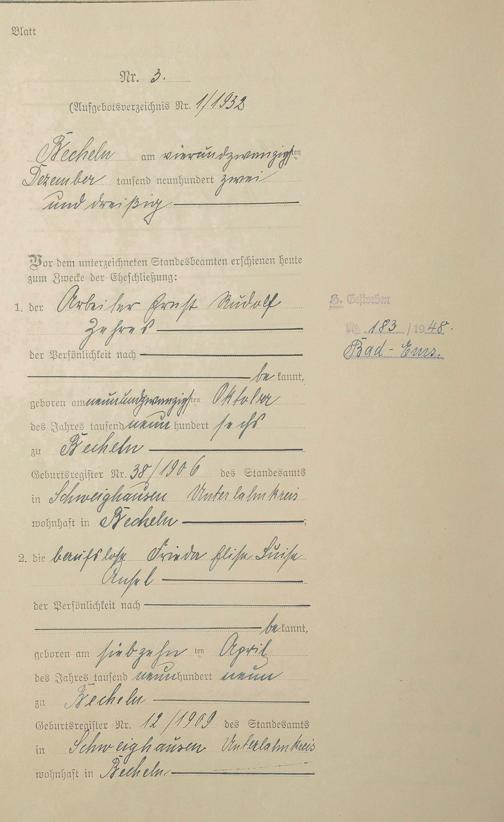 Blatt
Nr. 3.
(Aufgebotsverzeichnis Nr. 1/1932
Becheln am vierundzwanzigsten
Dezember tausend neunhundert zwei
und dreißig
Vor dem unterzeichneten Standesbeamten erschienen heute
zum Zwecke der Eheschließung:
1. der Arbeiter Ernst Rudolf
Zehres
der Persönlichkeit nach
be kannt,
geboren am neunundzwanzigsten Oktober
des Jahres tausend neun hundert sechs
zu Becheln
Geburtsregister Nr. 38/1906 des Standesamts
in Schweighausen Unterlahnkreis
wohnhaft in Becheln ;
2. die berufslose Frieda Elise Luise
Ansel
der Persönlichkeit nach
be kannt,
geboren am siebzehn ten April
des Jahres tausend neun hundert neun
zu Becheln
Geburtsregister Nr. 12/1909 des Standesamts
in Schweighausen Unterlahnkreis
wohnhaft in Becheln
Gestorben
Nr. 183/1948.
Bad-Ems.